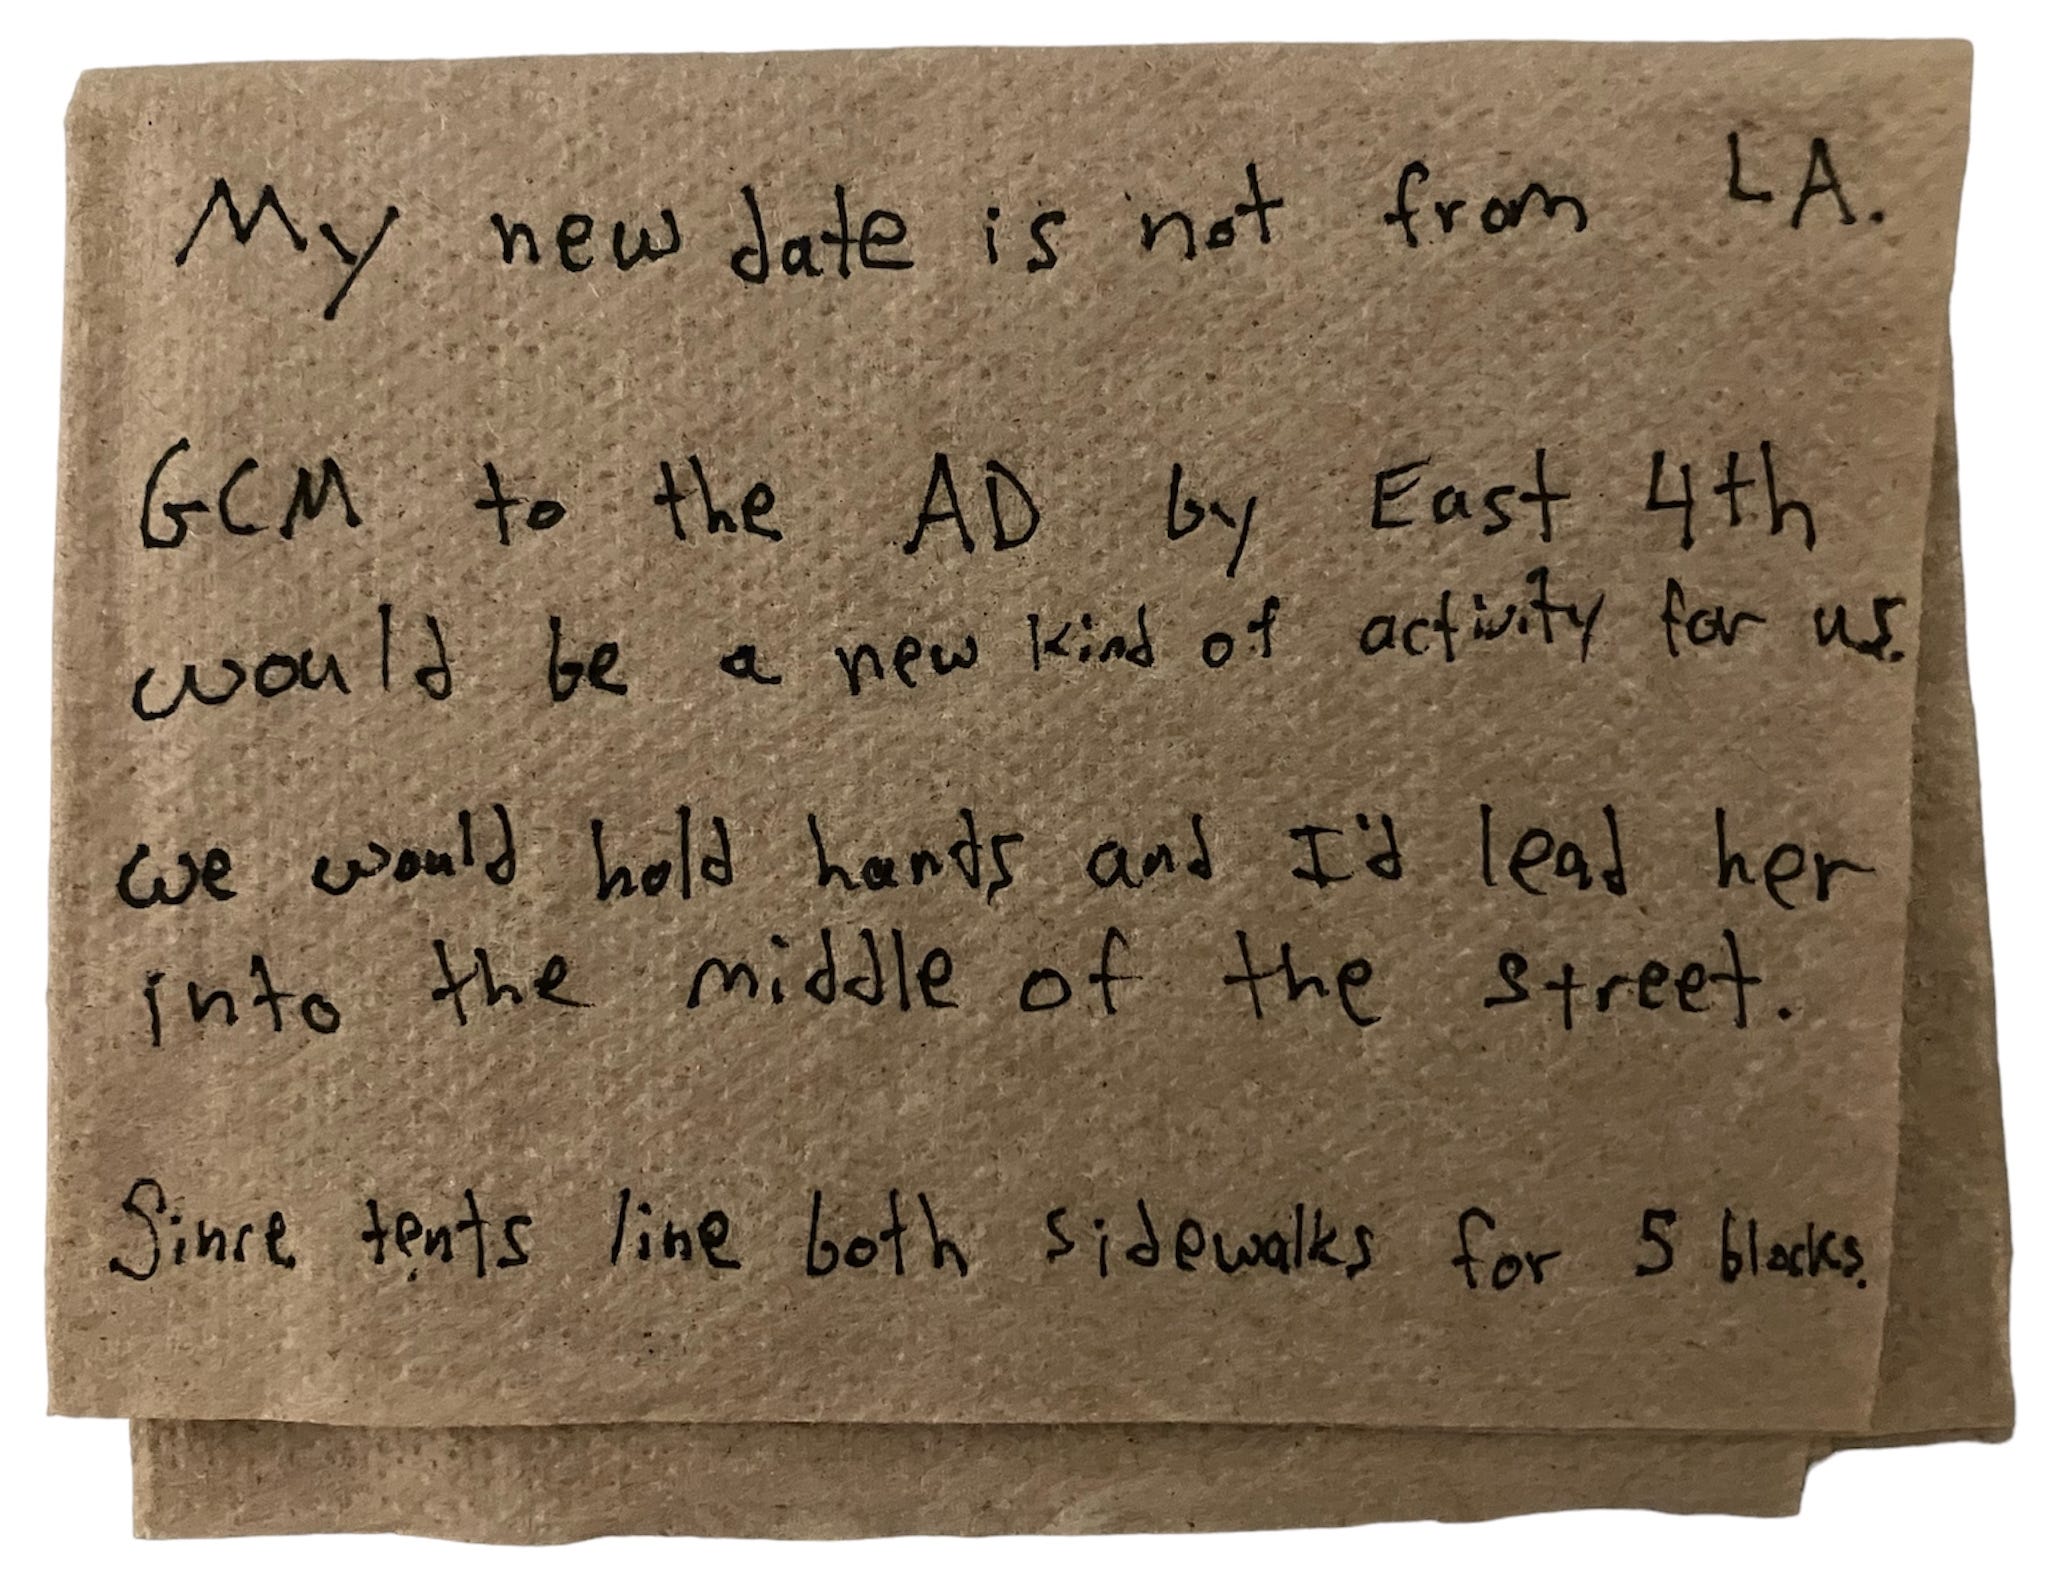 My new date is not from LA.
GCM to the AD by East 4th
would be a new kind of activity for us.
we would hold hands and I'd lead her
into the middle of the street.
Since tents line both sidewalks for 5 blocks.